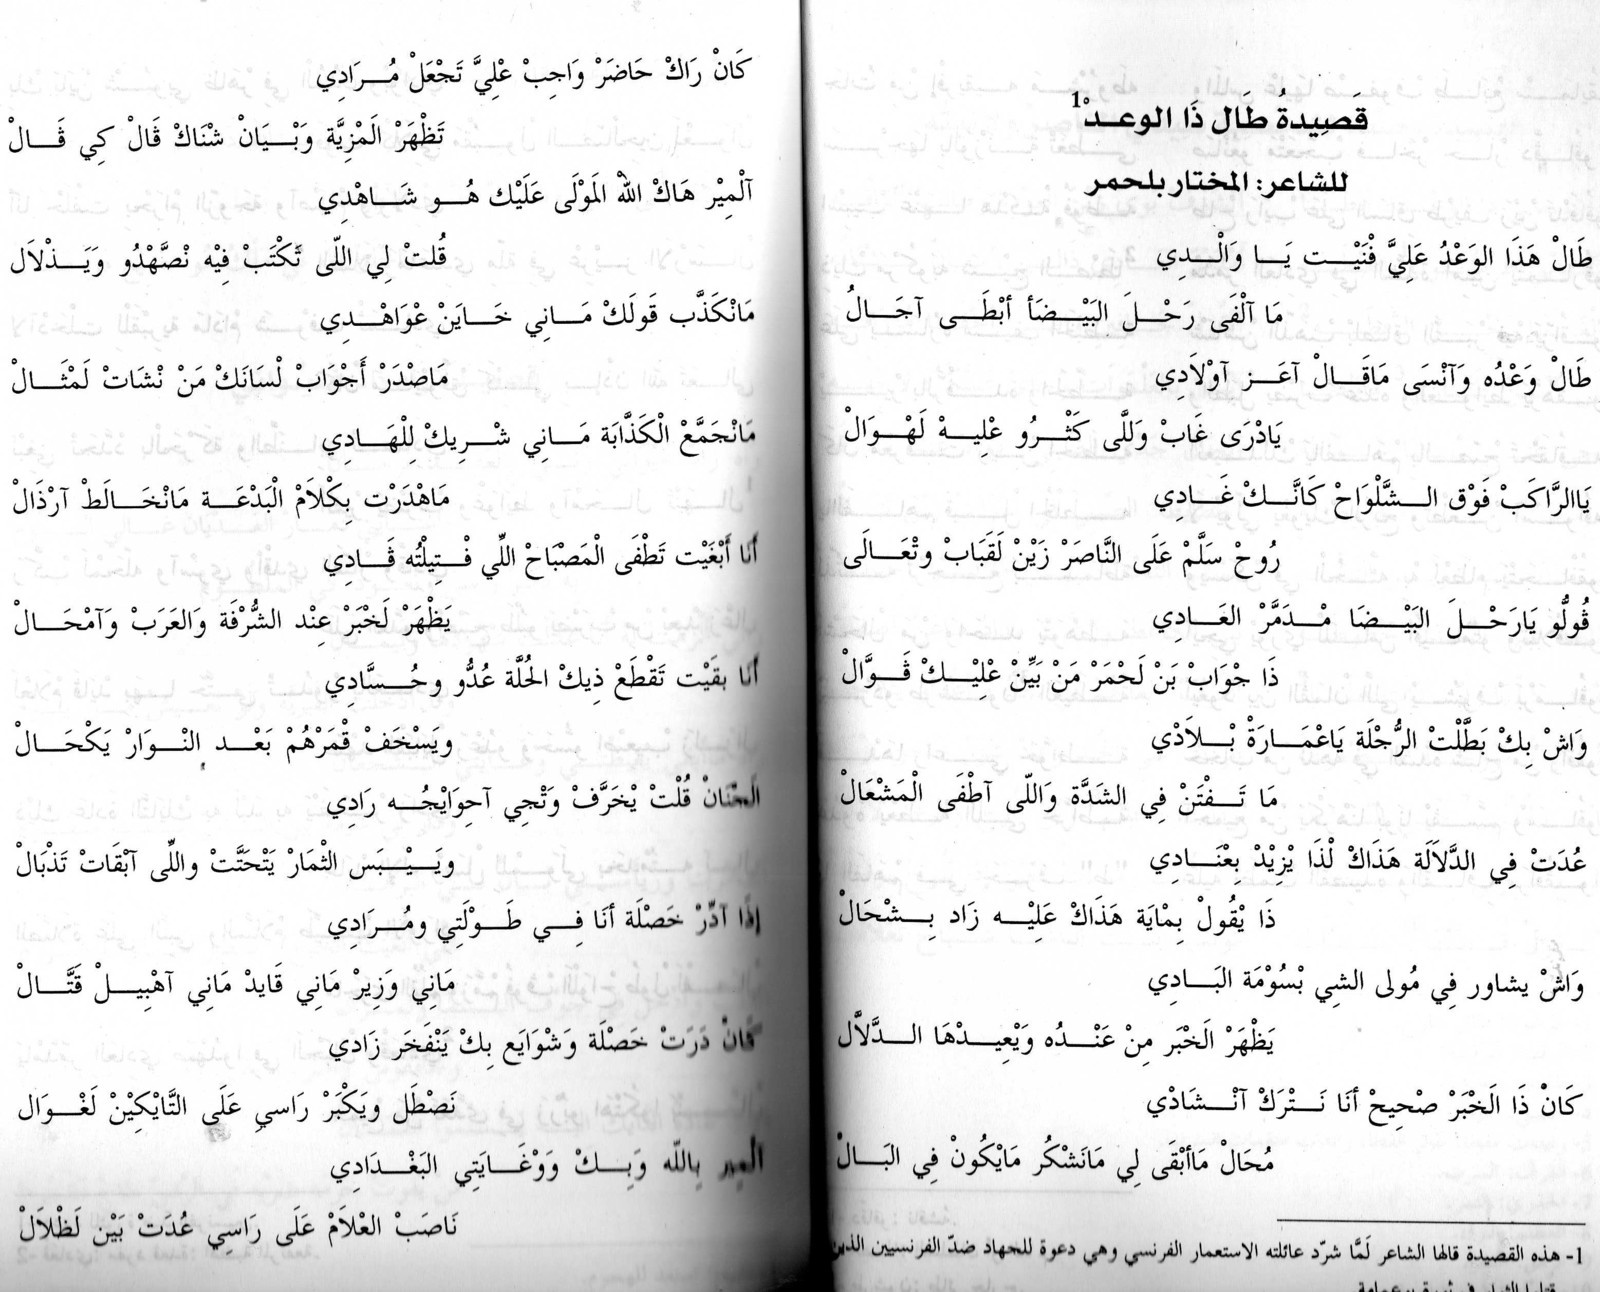 قَصِيدةُ طَال ذَا الوعـدْ1
للشاعر: المختار بلحمر
طَالْ هَذَا الوَعْدُ عَلِيَّ فْنَيْـت يَـا وَالْـدِي
مَا آلْفَى رَحْـلَ البَيْـضَأ أَبْطَـى آجَـالُ
طَالْ وَعْدُه وَآنْسَى مَاقَـالْ آعَـز آوْلَادِي
يَادْرَى غَابْ وَللَّى كَثْـرُو عْلِيـهْ لَهْـوَالْ
يَاالرَّاكَبْ فَوْق الـشَّلْوَاحْ كَانَّـكْ غَـادِي
رُوحْ سَلَّمْ عَلَى النَّاصَرْ زَيْنْ لَقبَابْ وتْعَـالَى
ڤُولُّو يَارَحْـلَ البَيْـضَا مْـدَمَّرْ العَـادِي
ذَا جْوَابْ بَنْ لَحْمَرْ مَنْ بَيِّنْ عْلِيْـكْ ڤَـوَّالْ
وَاشْ بِكْ بَطَّلْتْ الرُّجْلَة يَاعْمَـارَةْ بْـلَادْي
مَا تَـفْتَنْ فِي الشَدَّة وَاللّى آطْفَى الْمَشْعَالْ
عُدَتْ فِي الدَّلاَلَة هَذَاكْ لْذَا يْزِيْدْ بِعْنَـادِي
ذَا يْقُولْ بِمْايَة هَذَاكْ عَلِيْـه زَاد بِـشْحَالْ
وَاشْ يشاور فِي مُولى الشِي بْسُوْمَة البَـادِي
يَظْهَرْ الَخْبَر مِنْ عَنْـدُه وَيْعِيـدْهَا الـدَّلاَّل
كَانْ ذَا الَخْبَرْ صْحِيحْ أنَا نَـتْرَكْ آنْـشَادْي
مُحَالْ مَاأبْقَى لِي مَانَشْكُر مَايْكُونْ فِي البَـالْ
1- هذه القصيدة قالها الشاعر لَمَّا شرّد عائلته الاستعمار الفرنسي وهي دعوة للجهاد ضدّ الفرنسيين الذين
كَانْ رَاكْ حَاضَرْ وَاجِبْ عْلِيَّ تَجْعَلْ مُـرَادِي
تَظْهَرْ الَمْزِيَّة وَبْـيَانْ شْنَاكْ ڤَالْ كِي ڤَـالْ
آلْمِيْر هَاكْ اللهْ المَوْلَى عَلَيْك هُـو شَـاهْدِي
قُلتْ لِي اللّى تَكْتَبْ فِيْه نْصَّهْدُو وَيَـذْلَال
مَانْكَذَّب قَولَكْ مَـاني خَـايَنْ عْوَاهْـدِي
مَاصْدَرْ أَجْوَابْ لْسَانَكْ مَنْ نْشَاتْ لَمْثَـالْ
مَانْجَمَّعْ الْكَذَّابَة مَـاني شْـرِيكْ لِلْهَـادِي
مَاهْدَرْت بِكْلَامْ الْبَدْعَـة مَانْخَـالَطْ آرْذَالْ
أنا أَبْغَيْت تَطْفَى الْمَصْبَاحْ اللِّي فْـتِيلْتُه ڤَـادِي
يَظْهَرْ لَخْبَرْ عِنْد الشُّرْفَة وَالعَرَبْ وَآمْحَـالْ
أنا بقيْت تَقْطَعْ ذِيكْ الحُلَّة عُدُّو وحُـسَّادِي
ويَسْخَفْ قْمَرْهُمْ بَعْـد النْـوَارْ يَكْحَـالْ
الحْنَانْ قُلْتْ يْخَرَّفْ وَتْجِي آحوَايْجُـه رَادِي
ويَـيْـبَس الثْمَارْ يَتْحَتَّتْ واللِّى آبْقَاتْ تَذْبَالْ
إِذَا آدِّرْ خَصْلَة أنَا فِـي طَـولْتِي ومُـرَادِي
مَانِي وَزِيرْ مَانِي قَايدْ مَانِي آهْبِيـلْ قَتَّـالْ
كَانْ دَرَتْ خَصْلَة وَشْوَايَع بِكْ يَنْفَخَر زَادِي
نَصْطَل ويَكْبَرْ رَاسي عَلَى التَّايْكِيْنْ لَغْـوَال
الْمِير بِاللَّه وَبِـكْ وَوْغَـايَتِي البَغْـدَادِي
نَاصَبْ العْلَامْ عَلَى رَاسِي عُدَتْ بَيْن لَظْلَالْ